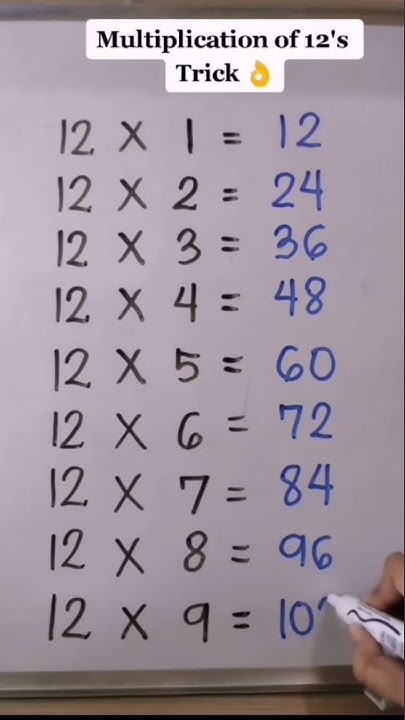 Multiplication of 12's
Trick 👌
12 X 1 = 12
12 X 2 = 24
12 X 3 = 36
12 X 4 = 48
12 X 5 = 60
12 X 6 = 72
12 X 7 = 84
12 X 8 = 96
12 X 9 = 10